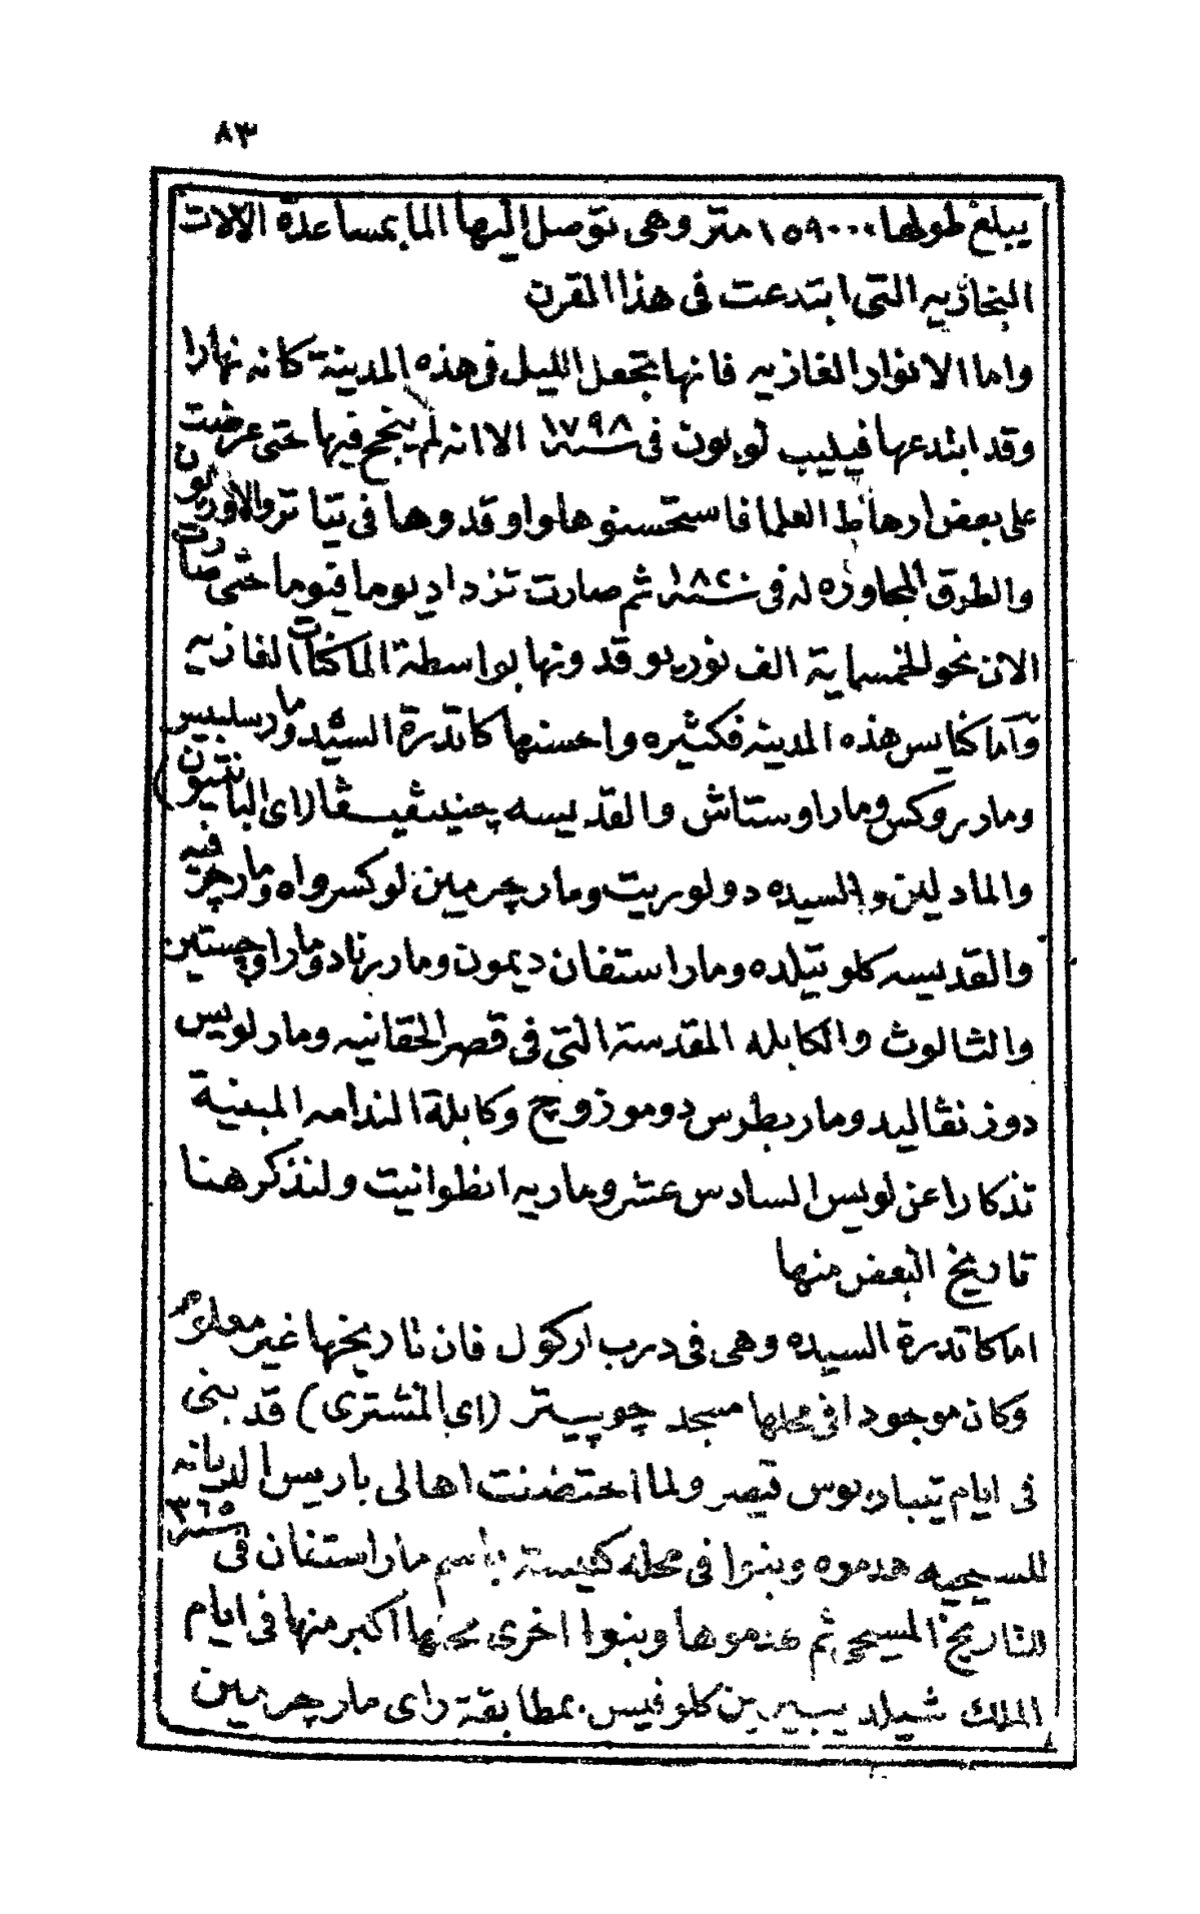 ٨٣
يبلغ طولها ١٥٩٠٠٠ متر وهى توصل اليها الما بمساعدة الآلات
البخازيه التى ابتدعت فى هذا القرن
واما الانوار الغازيه فانها تجعل الليل فى هذه المدينة كانه نهارا
وقد ابتدعها فيليب لوبون فى سنة ١٧٩٨ الا انه لم ينجح فيها حتى عرضت
على بعض ارهاط العلما فاستحسنوها واوقدوها فى تياتر والاوديون
والطرق المجاوزه له فى سنة ١٨٢٠ ثم صارت تزداد يوما فيوما حتى صارت
الان نحو الخمسماية الف نور يوقدونها بواسطة الماكنات الغازيه
وآما كنايس هذه المدينه فكثيره واحسنها كاتدرة السيده ومار سلبيس
ومار روكس ومار اوستاش والقديسه چنيڤيڤا (اى البانتيون)
والمادلين والسيده دولوريت ومار چرمين لوكسرواه ومار چرفيه
والقديسه كلوتيلده ومار استفان ديمون ومار برنادو ومار اوچستين
والثالوث والكابله المقدسة التى فى قصر الحقانيه ومار لويس
دوزنڤاليد ومار بطرس دوموزوچ وكابلة الندامه المبنية
تذكارا عن لويس السادس عشر وماريه انطوانيت ولنذكر هنا
تاريخ البعض منها
اما كاتدرة السيده وهى فى درب اركول فان تاريخها غير معلوم
وكان موجودا فى محلها مسجد چوپيتر (اى المشترى) قد بنى
فى ايام تيباريوس قيصر ولما احتضنت اهالى باريس الديانه
المسيحيه هدموه وبنوا فى محله كنيسة باسم مار استفان فى سنة ٣٦٥
للتاريخ المسيحى ثم هدموها وبنوا اخرى محلها اكبر منها فى ايام
الملك شيلد بير بن كلوفيس بمطابقة راى مار چرمين